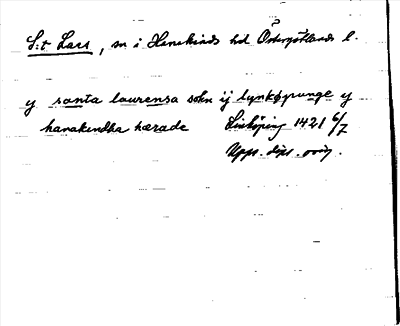 S:t Lars, sn i Hanekinds hd Östergötlands l.
y santa laurensa sokn ij lynkøpunge y
hanakindha hærade Linköping 1421 6/7
Upps. dipl. ovig.